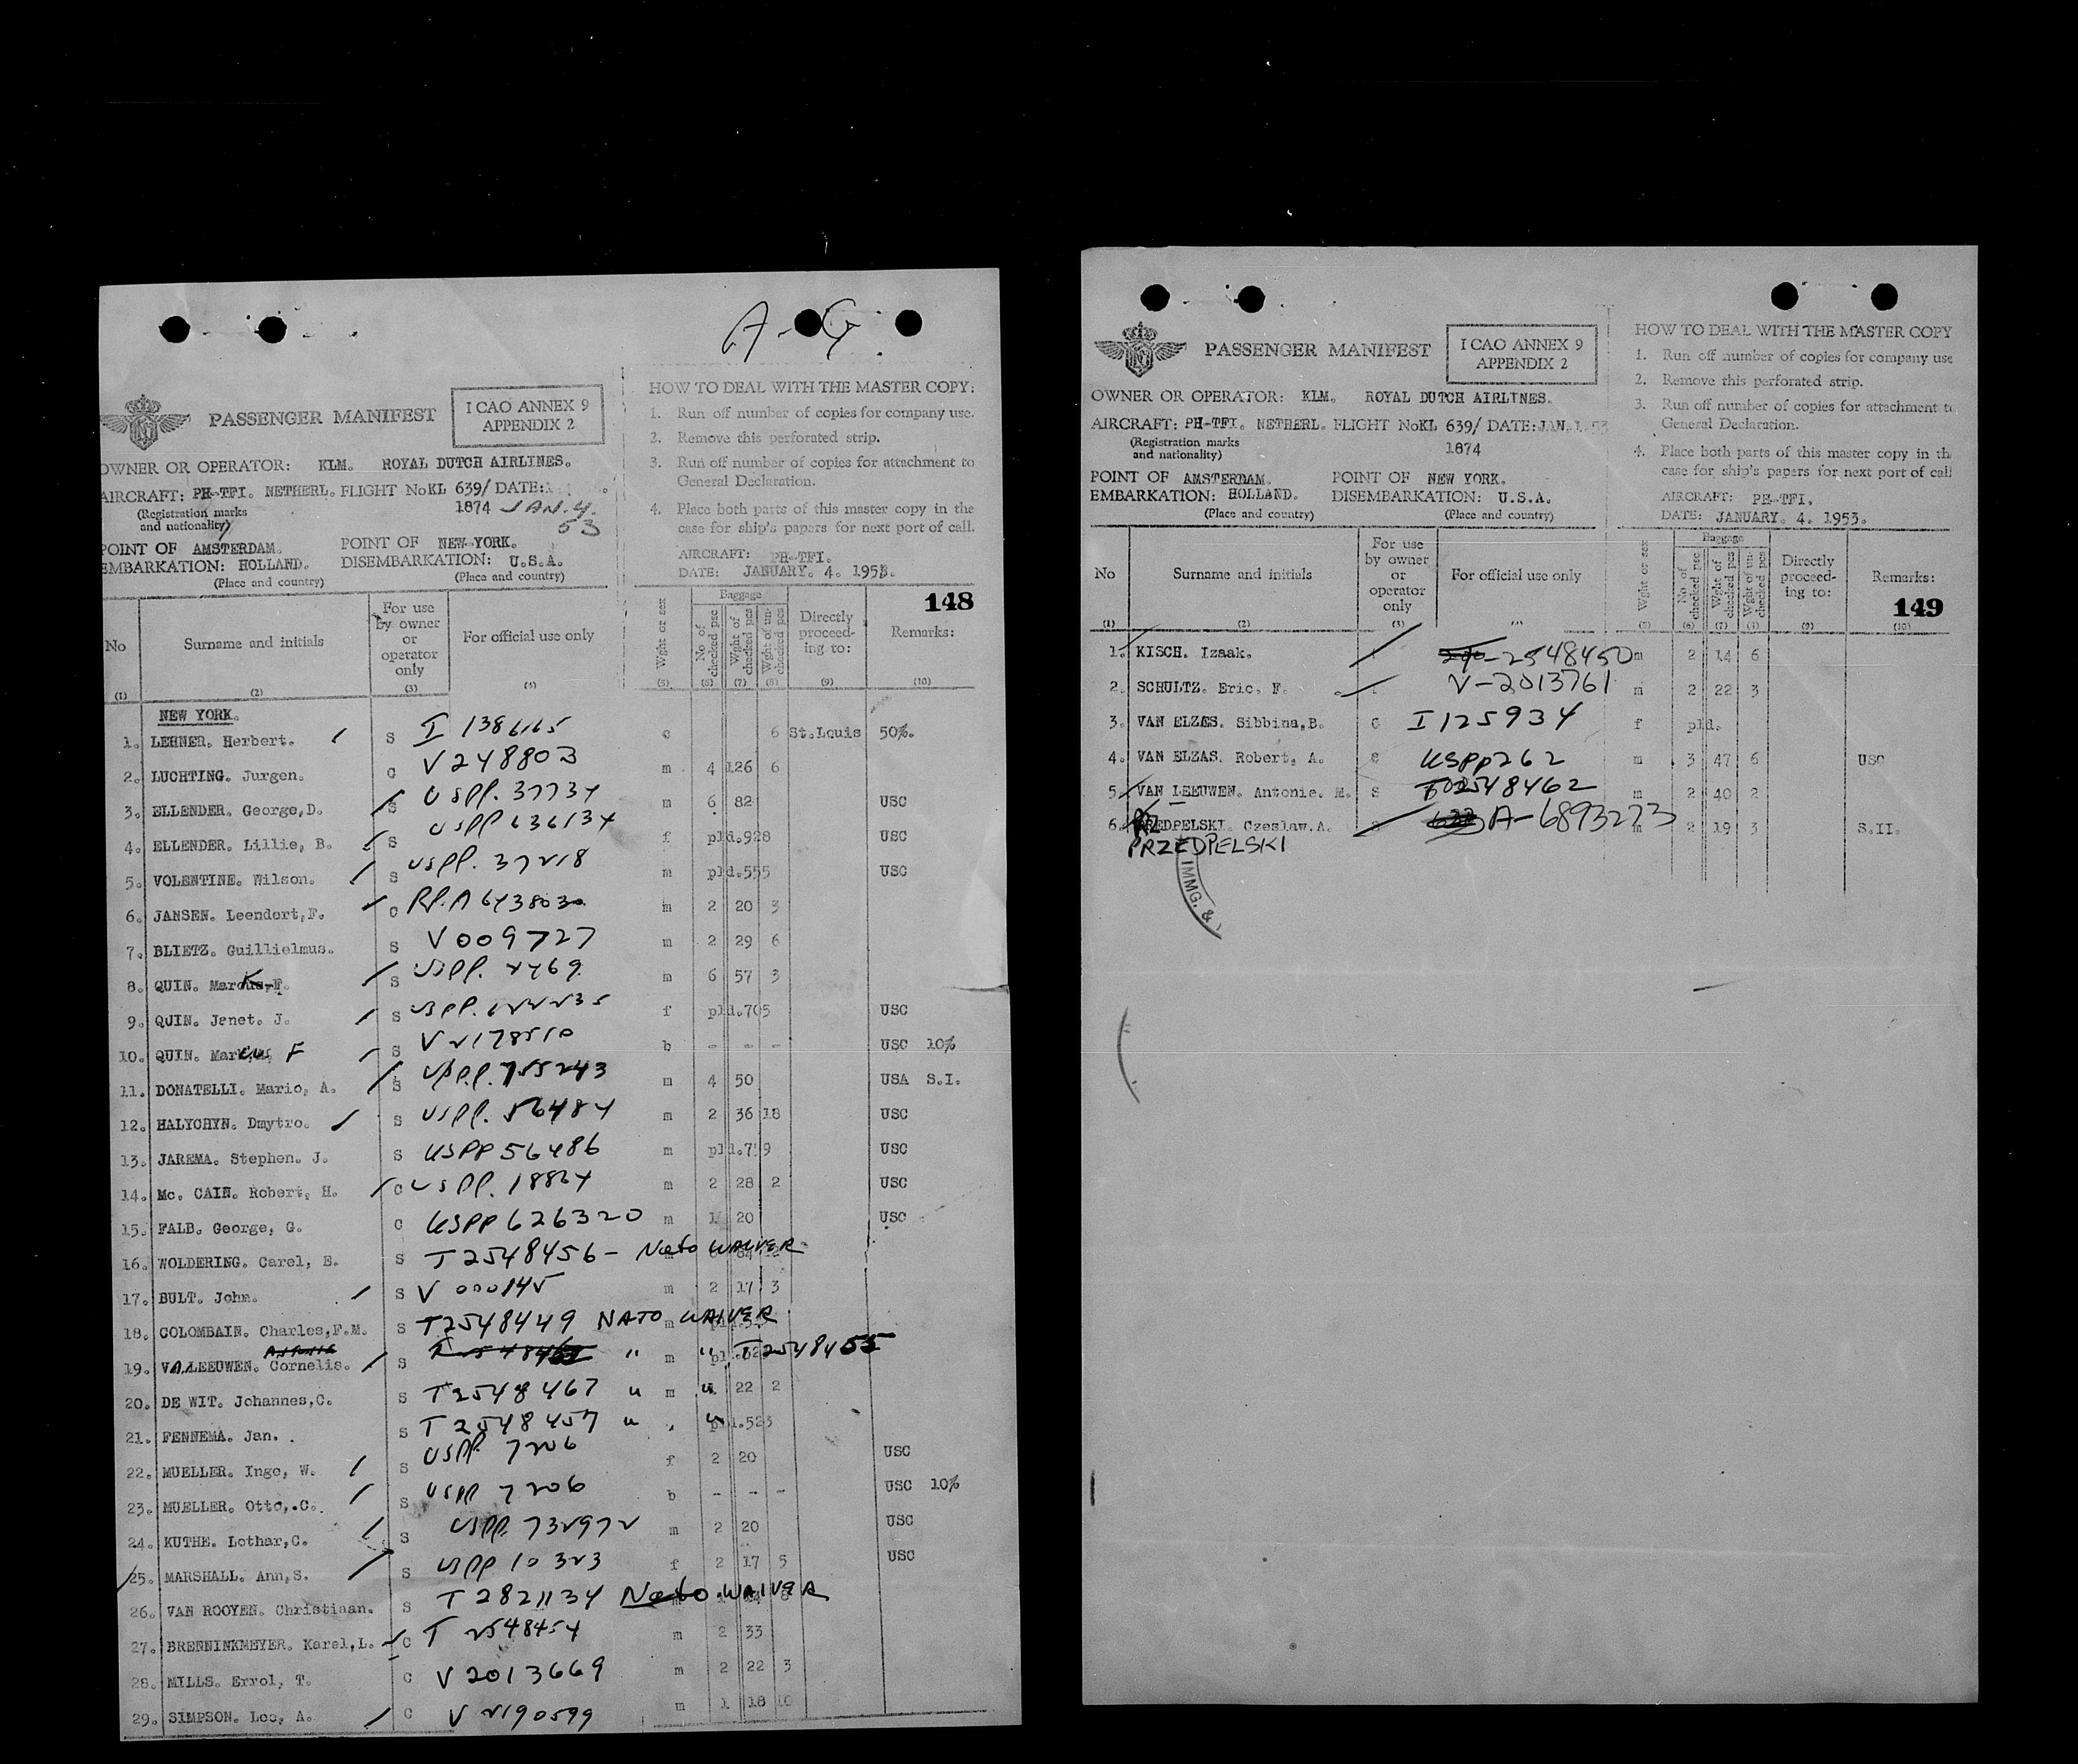 A-G
PASSENGER MANIFEST
I CAO ANNEX 9
APPENDIX 2
OWNER OR OPERATOR: KLM. ROYAL DUTCH AIRLINES.
AIRCRAFT: PH-TFI. NETHERL. FLIGHT No KL 639/ DATE:
(Registration marks
and nationality)
1874 JAN. 4. 53
POINT OF AMSTERDAM. POINT OF NEW YORK.
EMBARKATION: HOLLAND. DISEMBARKATION: U.S.A.
(Place and country) (Place and country)
HOW TO DEAL WITH THE MASTER COPY:
1. Run off number of copies for company use.
2. Remove this perforated strip.
3. Run off number of copies for attachment to
General Declaration.
4. Place both parts of this master copy in the
case for ship's papers for next port of call.
AIRCRAFT: PH-TFI.
DATE: JANUARY. 4. 1953.
148
No Surname and initials For use by owner or operator only For official use only Wght or sex Baggage No of checked pcs Wght of checked pcs Wght of un-checked pcs Directly proceed-ing to: Remarks:
(1) (2) (3) (4) (5) (6) (7) (8) (9) (10)
NEW YORK.
1. LEHNER. Herbert. S I 1386165 c 6 St.Louis 50%.
2. LUCHTING. Jurgen. C V248803 m 4 126 6
3. ELLENDER. George,D. S USPP. 37734 m 6 82 USC
4. ELLENDER. Lillie, B. S USPP 636134 f pld.928 USC
5. VOLENTINE. Wilson. S USPP. 37218 m pld.555 USC
6. JANSEN. Leendert,F. C RP.A 6438030 m 2 20 3
7. BLIETZ. Guillielmus. S V009727 m 2 29 6
8. QUIN. Marcus,F. S USPP. 2469 m 6 57 3
9. QUIN. Jenet. J. S USPP. 622235 f pld.705 USC
10. QUIN. F S V2178510 b - - - USC 10%
11. DONATELLI. Mario, A. S USPP. 755243 m 4 50 USA S.I.
12. HALYCHYN. Dmytro. S USPP. 56484 m 2 36 18 USC
13. JAREMA. Stephen. J. S USPP 56486 m pld.759 USC
14. Mc. CAIN. Robert, H. C USPP. 18824 m 2 28 2 USC
15. FALB. George, G. C USPP 626320 m 1 20 USC
16. WOLDERING. Carel, E. S T2548456 - Nato WAIVER
17. BULT. John. S V 000145 m 2 17 3
18. COLOMBAIN. Charles,F.M. S T2548449 NATO WAIVER m
19. V.LEEUWEN. Cornelis. S " m " T2548455
20. DE WIT. Johannes,C. S T2548467 " m " 22 2
21. FENNEMA. Jan. S T2548457 " " pld.523
22. MUELLER. Inge, W. S USPP. 7206 f 2 20 USC
23. MUELLER. Otto,.C. S USPP 7206 b - - - USC 10%
24. KUTHE. Lothar,C. S USPP. 732972 m 2 20 USC
25. MARSHALL. Ann,S. S USPP 10323 f 2 17 5 USC
26. VAN ROOYEN. Christiaan. S T2821134 Nato WAIVER
27. BRENNINKMEYER. Karel,L. C T 2548454 m 2 33
28. MILLS. Errol, T. C V2013669 m 2 22 3
29. SIMPSON. Leo, A. C V 2190599 m 1 18 10
PASSENGER MANIFEST
I CAO ANNEX 9
APPENDIX 2
OWNER OR OPERATOR: KLM. ROYAL DUTCH AIRLINES.
AIRCRAFT: PH-TFI. NETHERL. FLIGHT No KL 639/ DATE: JAN.
(Registration marks
and nationality)
1874
POINT OF AMSTERDAM. POINT OF NEW YORK.
EMBARKATION: HOLLAND. DISEMBARKATION: U.S.A.
(Place and country) (Place and country)
HOW TO DEAL WITH THE MASTER COPY
1. Run off number of copies for company use
2. Remove this perforated strip.
3. Run off number of copies for attachment to
General Declaration.
4. Place both parts of this master copy in th
case for ship's papers for next port of call
AIRCRAFT: PH-TFI.
DATE: JANUARY. 4. 1953.
No Surname and initials For use by owner or operator only For official use only Wght or sex Baggage No of checked pcs Wght of checked pcs Wght of un-checked pcs Directly proceed-ing to: Remarks:
149
(1) (2) (3) (5) (6) (7) (9) (10)
1. KISCH. Izaak. 2548450 m 2 14 6
2. SCHULTZ. Eric, F. V-2013761 m 2 22 3
3. VAN ELZAS. Sibbina,B. C I125934 f pld.
4. VAN ELZAS. Robert, A. C USPP262 m 3 47 6 USC
5. VAN LEEUWEN. Antonie. M. S T02548462 m 2 40 2
6. PRZEDPELSKI. Czeslaw.A. S A-6893273 m 2 19 3 S.II.
PRZEDPELSKI
IMMG. &